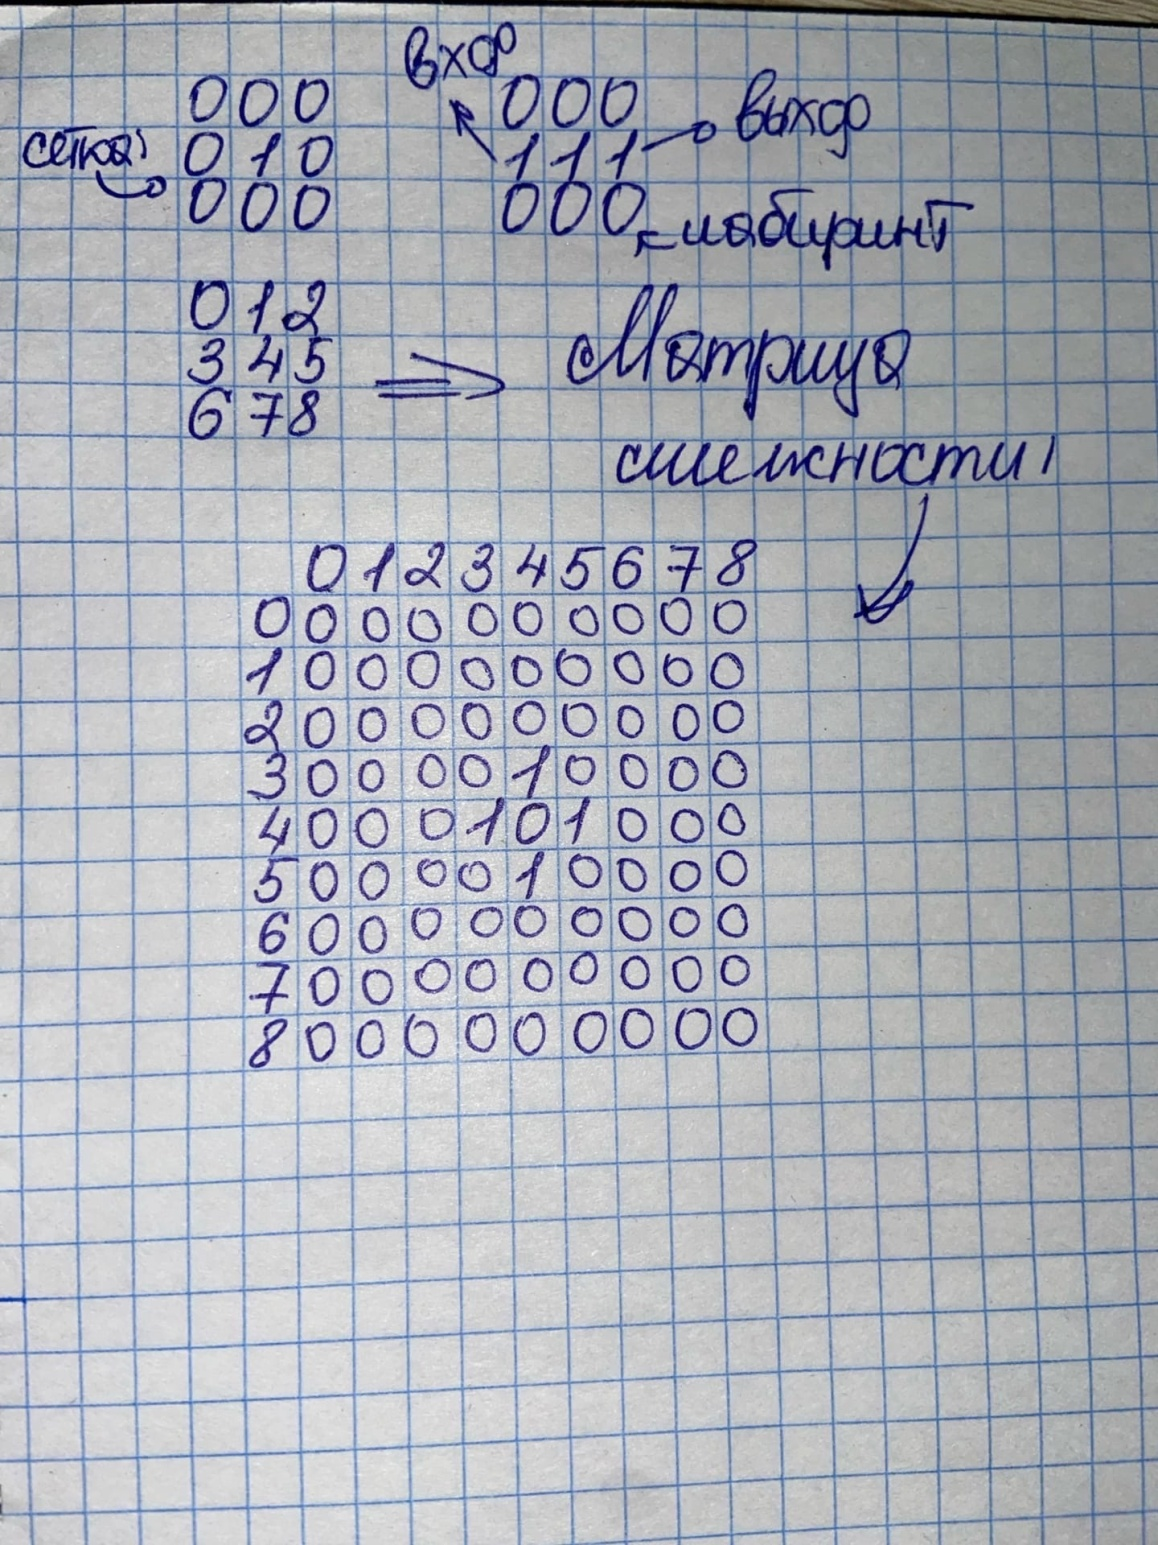 вход
000 000 выход
сетка: 010 111
000 000 - лабиринт
012
345 => Матрица
678
смежности:
012345678
0 000000000
1 000000000
2 000000000
3 000010000
4 000101000
5 000010000
6 000000000
7 000000000
8 000000000